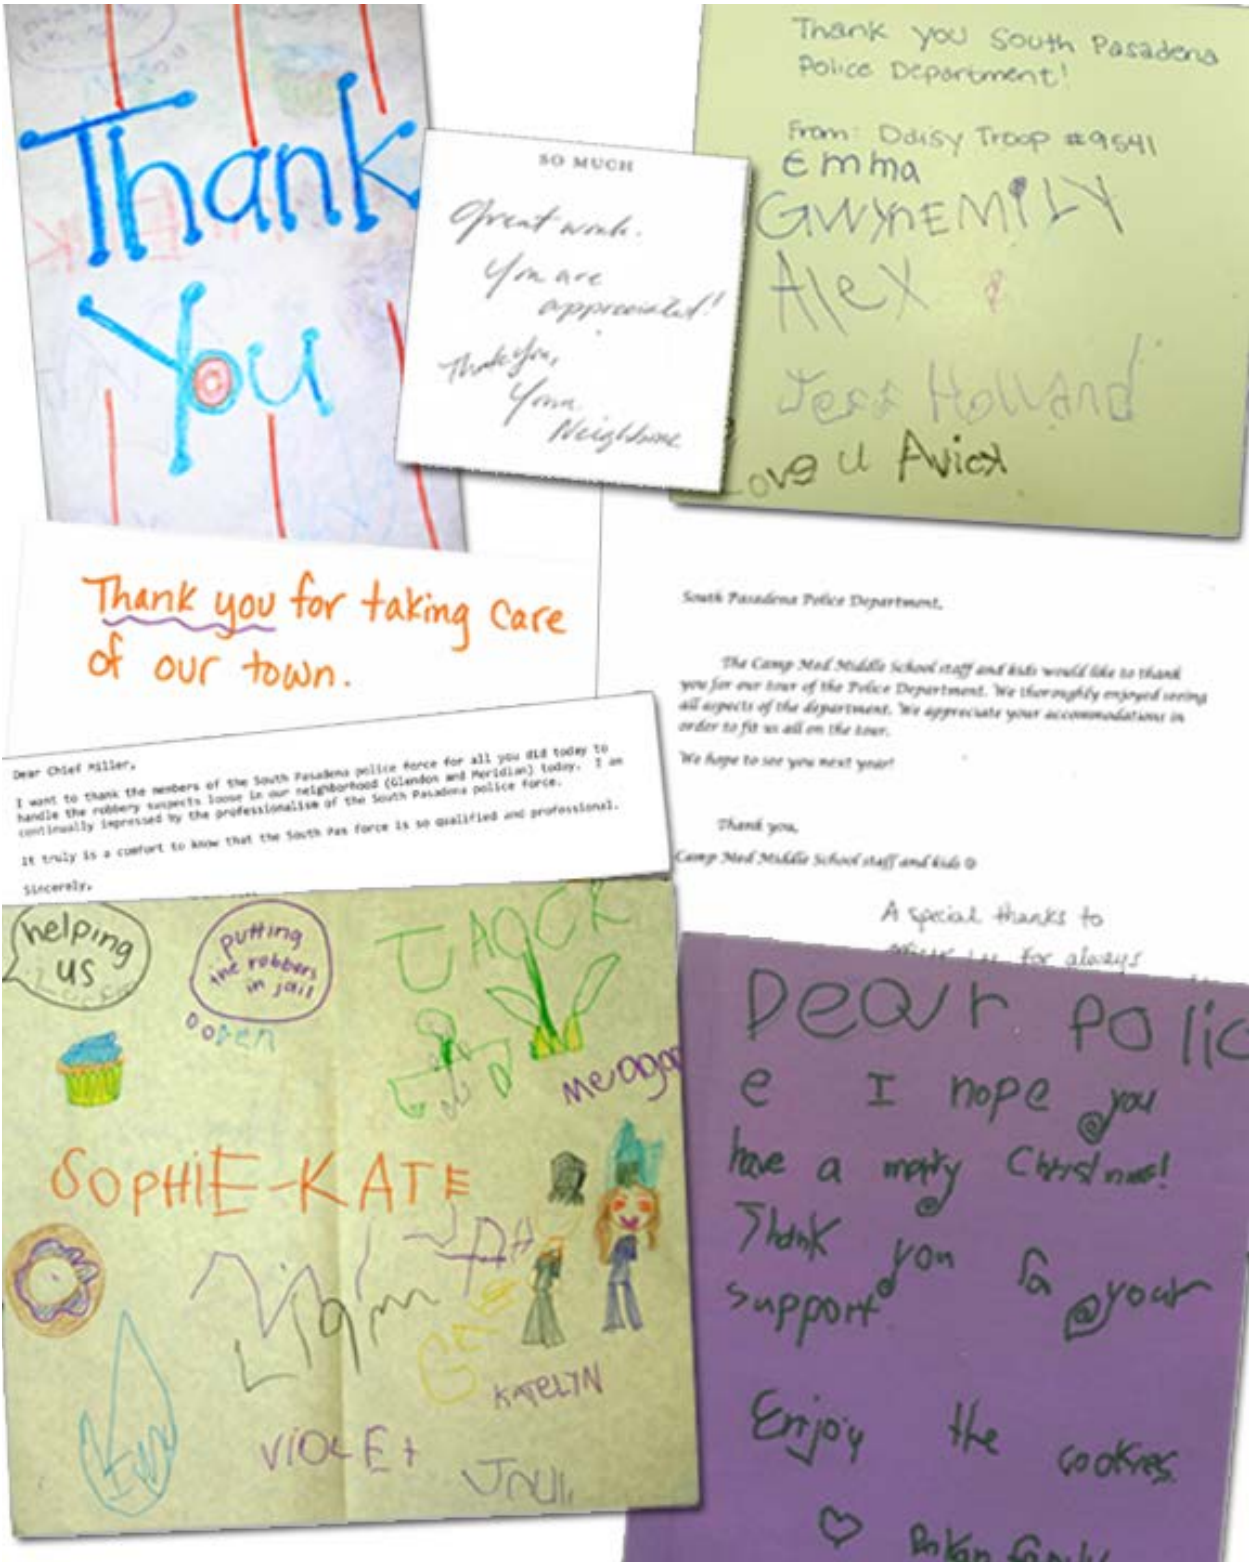 Thank
You
SO MUCH
Great work.
You are
appreciated!
Thank you,
Your
Neighbors
Thank you South Pasadena
Police Department!
From: Daisy Troop #9541
Emma
GWYNEMILY
Alex
Jess Holland
Love u
Thank you for taking care
of our town.
South Pasadena Police Department,
The Camp Med Middle School staff and kids would like to thank
you for our tour of the Police Department. We thoroughly enjoyed seeing
all aspects of the department. We appreciate your accommodations in
order to fit us all on the tour.
We hope to see you next year!
Thank you,
Camp Med Middle School staff and kids ☺
A special thanks to
for always
Dear Chief Miller,
I want to thank the members of the South Pasadena police force for all you did today to
handle the robbery suspects loose in our neighborhood (Glendon and Meridian) today. I am
continually impressed by the professionalism of the South Pasadena police force.
It truly is a comfort to know that the South Pas force is so qualified and professional.
Sincerely,
helping
us
putting
the robbers
in jail
meagan
SOPHIE-KATE
Liam
KATELYN
VIOLET
Dear Polic
e I hope you
have a merry Christmas!
Thank you for your
support
Enjoy the cookies
♡